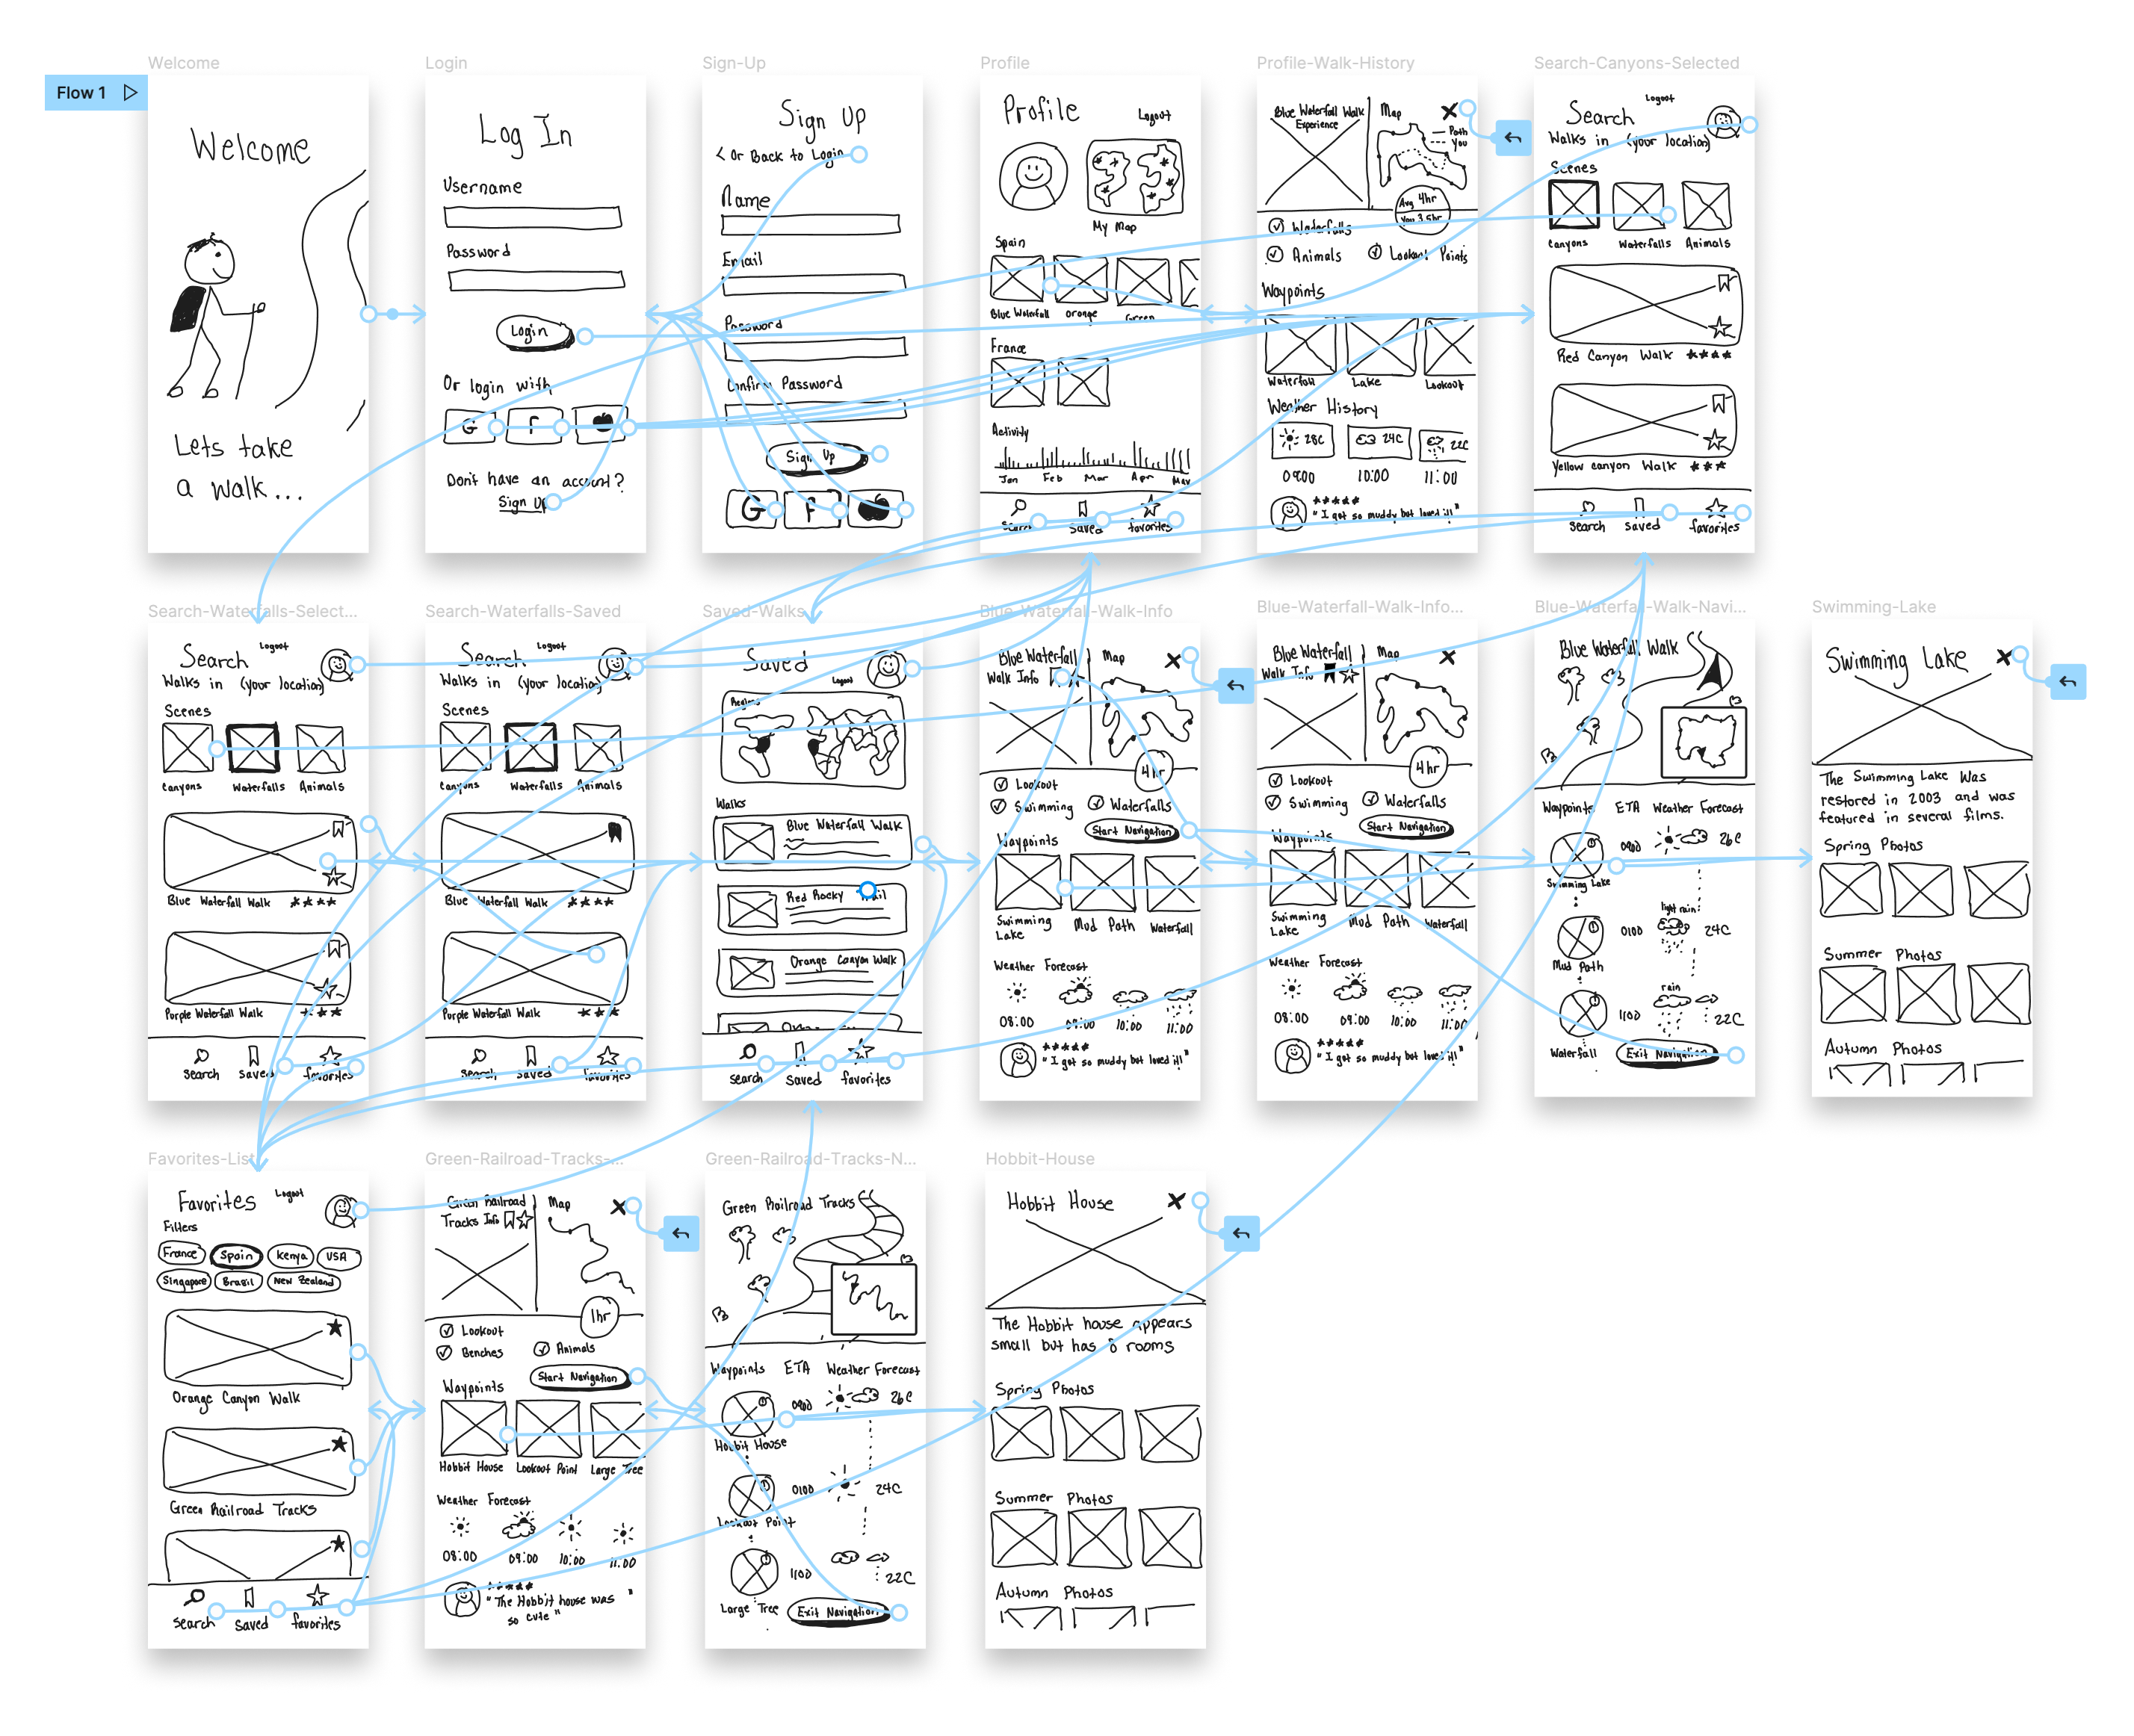 Flow 1
Welcome
Welcome
Lets take
a walk...
Login
Log In
Username
Password
Login
Or login with
G f
Don't have an account?
Sign Up
Sign-Up
Sign Up
< Or Back to Login
Name
Email
Password
Confirm Password
Sign Up
G f
Profile
Profile
Logout
My Map
Spain
Blue Waterfall Orange Green
France
Activity
Jan Feb Mar Apr May
Search Saved favorites
Profile-Walk-History
Blue Waterfall Walk
Experience
Map
Path
You
Avg 4hr
You 3.5hr
Waterfalls
Animals
Lookout Points
Waypoints
Waterfall Lake Lookout
Weather History
28C 24C 22C
09:00 10:00 11:00
"I got so muddy but loved it!"
Search-Canyons-Selected
Search
Logout
Walks in (your location)
Scenes
Canyons Waterfalls Animals
Red Canyon Walk
Yellow Canyon Walk
Search Saved favorites
Search-Waterfalls-Select...
Search
Logout
Walks in (your location)
Scenes
Canyons Waterfalls Animals
Blue Waterfall Walk
Purple Waterfall Walk
Search Saved favorites
Search-Waterfalls-Saved
Search
Logout
Walks in (your location)
Scenes
Canyons Waterfalls Animals
Blue Waterfall Walk
Purple Waterfall Walk
Search Saved favorites
Saved-Walks
Saved
Logout
Regions
Walks
Blue Waterfall Walk
Red Rocky Trail
Orange Canyon Walk
search Saved favorites
Blue-Waterfall-Walk-Info
Blue Waterfall
Walk Info
Map
4hr
Lookout
Swimming
Waterfalls
Start Navigation
Waypoints
Swimming Lake
Mud Path
Waterfall
Weather Forecast
08:00 09:00 10:00 11:00
"I got so muddy but loved it!"
Blue-Waterfall-Walk-Info...
Blue Waterfall
Walk Info
Map
4hr
Lookout
Swimming
Waterfalls
Start Navigation
Waypoints
Swimming Lake
Mud Path
Waterfall
Weather Forecast
08:00 09:00 10:00 11:00
"I got so muddy but loved it!"
Blue-Waterfall-Walk-Navi...
Blue Waterfall Walk
Waypoints ETA Weather Forecast
0900 26C
Swimming Lake
light rain
0100 24C
Mud Path
rain
1100 22C
Waterfall
Exit Navigation
Swimming-Lake
Swimming Lake
The Swimming Lake Was
restored in 2003 and was
featured in several films.
Spring Photos
Summer Photos
Autumn Photos
Favorites-List
Favorites
Logout
Filters
France Spain Kenya USA
Singapore Brazil New Zealand
Orange Canyon Walk
Green Railroad Tracks
search Saved favorites
Green-Railroad-Tracks-...
Green Railroad
Tracks Info
Map
1hr
Lookout
Benches
Animals
Start Navigation
Waypoints
Hobbit House Lookout Point Large Tree
Weather Forecast
08:00 09:00 10:00 11:00
"The Hobbit house was
so cute"
Green-Railroad-Tracks-N...
Green Railroad Tracks
Waypoints ETA Weather Forecast
0900 26C
Hobbit House
0100 24C
Lookout Point
1100 22C
Large Tree
Exit Navigation
Hobbit-House
Hobbit House
The Hobbit house appears
small but has 8 rooms
Spring Photos
Summer Photos
Autumn Photos